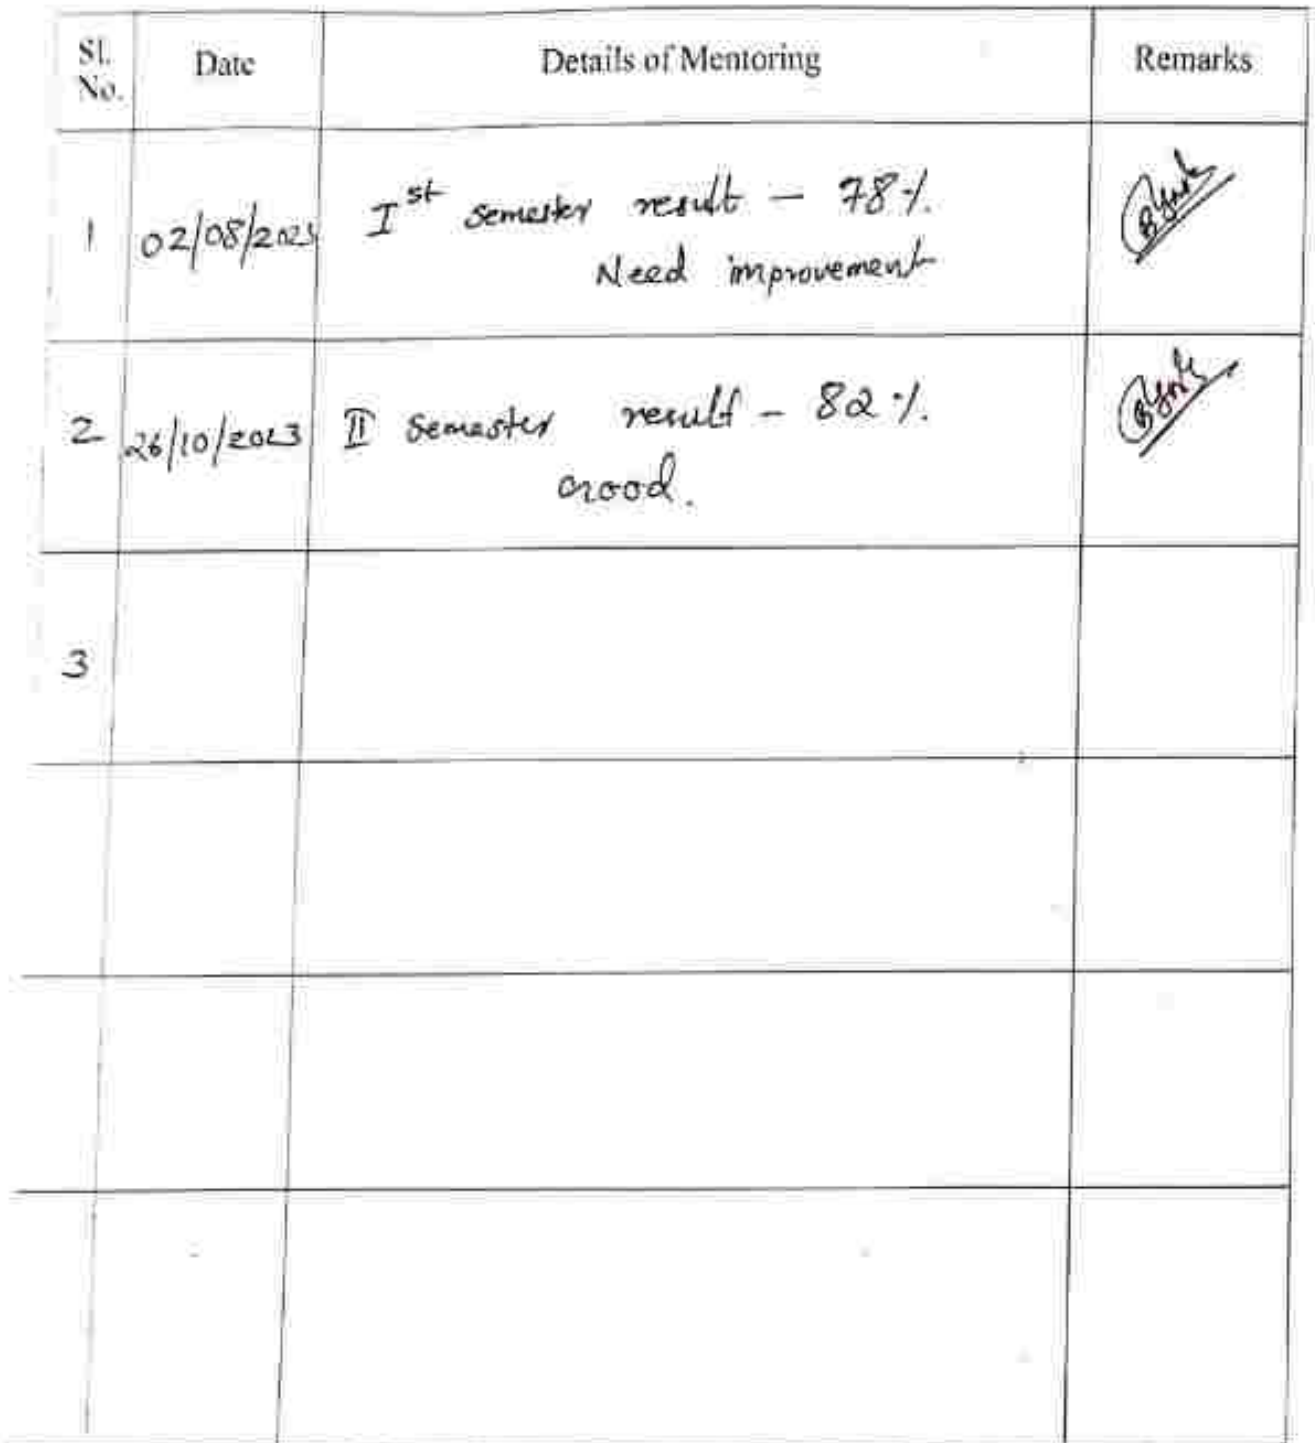 Sl. No. Date Details of Mentoring Remarks
1 02/08/2023 Ist semester result – 78%.
Need improvement
2 26/10/2023 II semester result – 82%.
Good.
3